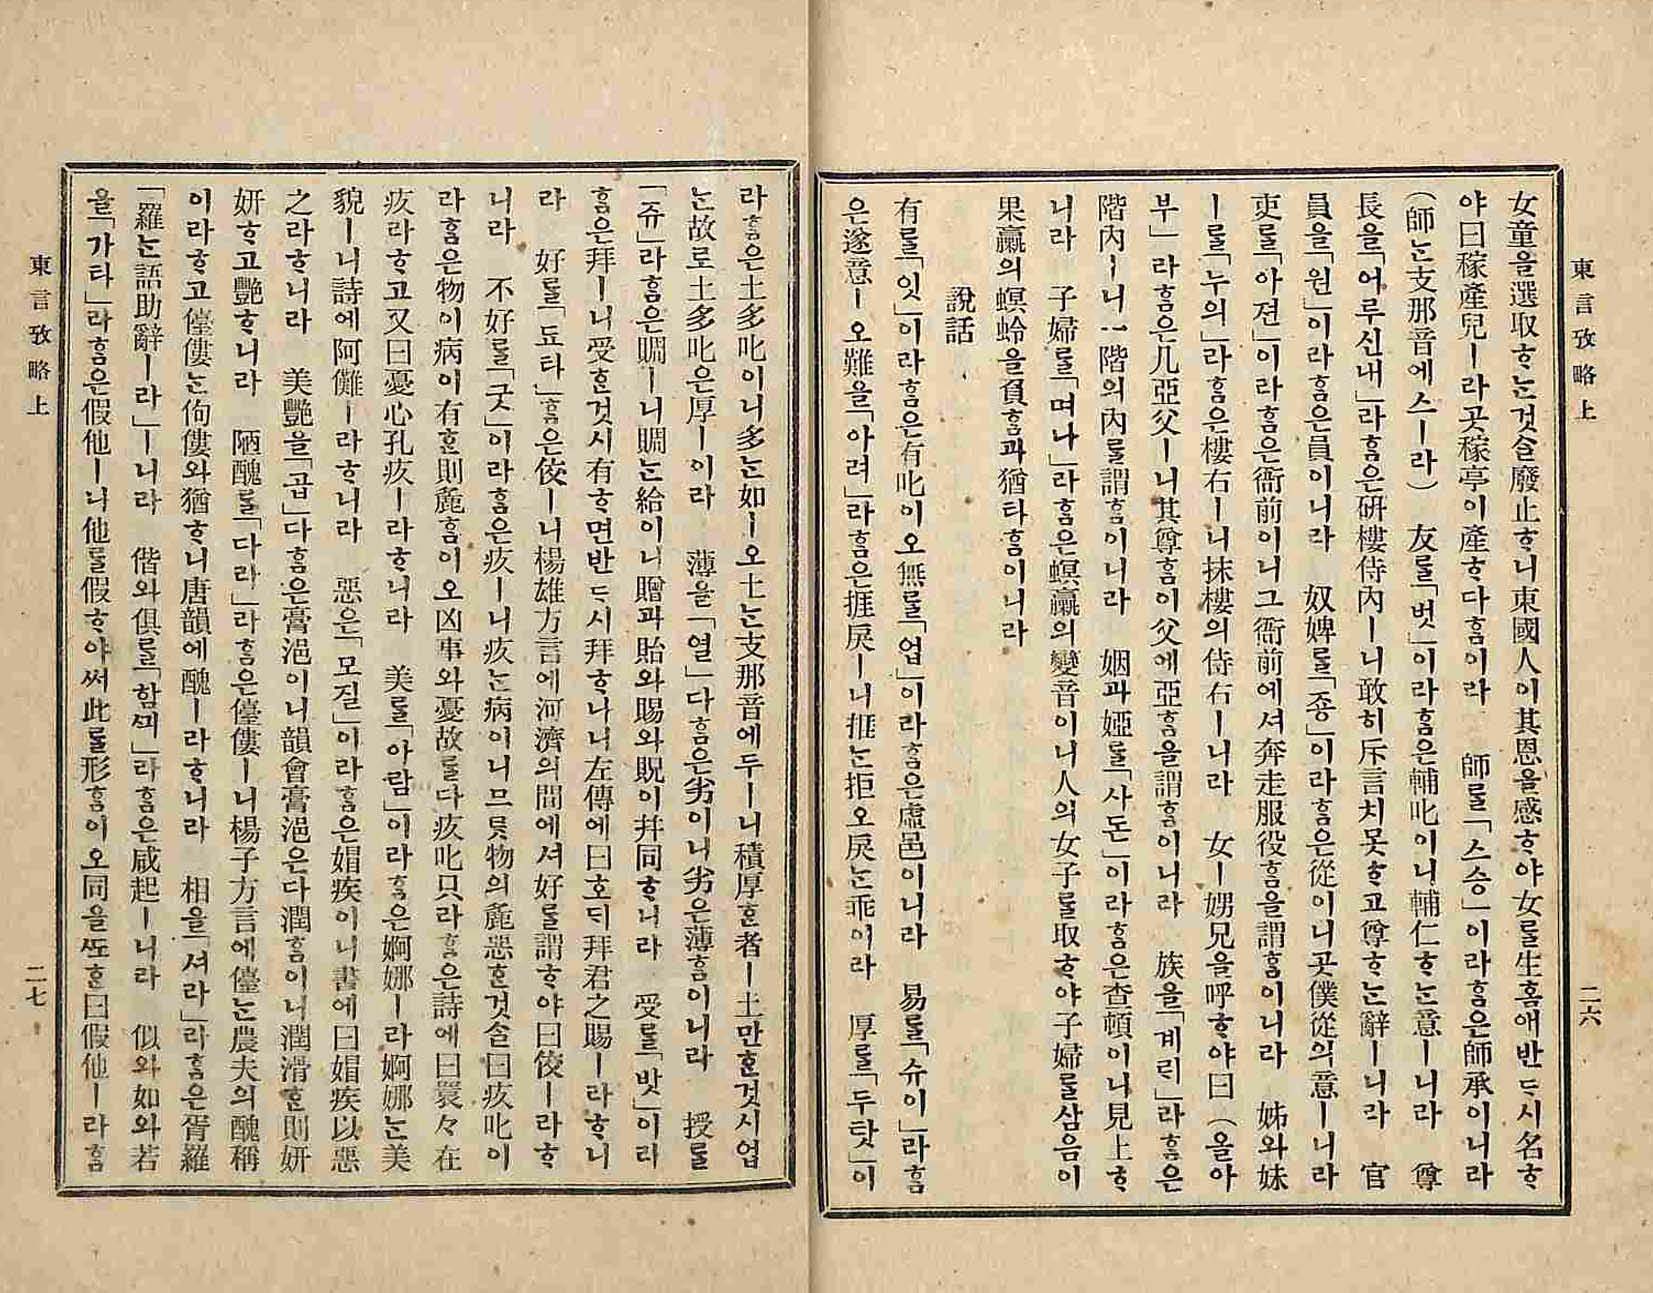 東言攷略上
二六
女童을選取ᄒᆞᄂᆞᆫ것슬廢止ᄒᆞ니東國人이其恩을感ᄒᆞ야女를生ᄒᆞᆷ애반ᄃᆞ시名ᄒᆞ
야曰稼產兒ㅣ라곳稼亭이產ᄒᆞ다ᄒᆞᆷ이라 師를「스승」이라ᄒᆞᆷ은師承이니라
(師ᄂᆞᆫ支那音에스ㅣ라) 友를「벗」이라ᄒᆞᆷ은輔叱이니輔仁ᄒᆞᄂᆞᆫ意ㅣ니라 尊
長을「어루신내」라ᄒᆞᆷ은硏樓侍內ㅣ니敢히斥言치못ᄒᆞ고尊ᄒᆞᄂᆞᆫ辭ㅣ니라 官
員을「원」이라ᄒᆞᆷ은員이니라 奴婢를「죵」이라ᄒᆞᆷ은從이니곳僕從의意ㅣ니라
吏를「아젼」이라ᄒᆞᆷ은衙前이니그衙前에셔奔走服役ᄒᆞᆷ을謂ᄒᆞᆷ이니라 姊와妹
ㅣ를「누의」라ᄒᆞᆷ은樓右ㅣ니抹樓의侍右ㅣ니라 女ㅣ娚兄을呼ᄒᆞ야曰(올아
부」라ᄒᆞᆷ은兀亞父ㅣ니其尊ᄒᆞᆷ이父에亞ᄒᆞᆷ을謂ᄒᆞᆷ이니라 族을「계ᄅᆡ」라ᄒᆞᆷ은
階內ㅣ니一階의內를謂ᄒᆞᆷ이니라 姻과婭를「사돈」이라ᄒᆞᆷ은查頓이니見上ᄒᆞ
니라 子婦를「며나」라ᄒᆞᆷ은螟蠃의變音이니人의女子를取ᄒᆞ야子婦를삼음이
果蠃의螟蛉을負ᄒᆞᆷ과猶타ᄒᆞᆷ이니라
說話
有를「잇」이라ᄒᆞᆷ은有叱이오無를「업」이라ᄒᆞᆷ은虛邑이니라 易를「슈이」라ᄒᆞᆷ
은遂意ㅣ오難을「아려」라ᄒᆞᆷ은捱戾ㅣ니捱ᄂᆞᆫ拒오戾ᄂᆞᆫ乖이라 厚를「두탓」이
라ᄒᆞᆷ은土多叱이니多ᄂᆞᆫ如ㅣ오土ᄂᆞᆫ支那音에두ㅣ니積厚ᄒᆞᆫ者ㅣ土만ᄒᆞᆫ것시업
ᄂᆞᆫ故로土多叱은厚ㅣ이라 薄을「열」다ᄒᆞᆷ은劣이니劣은薄ᄒᆞᆷ이니라 授를
「쥬」라ᄒᆞᆷ은賙ㅣ니賙ᄂᆞᆫ給이니贈과貽와賜와貺이幷同ᄒᆞ니라 受를「밧」이라
ᄒᆞᆷ은拜ㅣ니受ᄒᆞᆫ것시有ᄒᆞ면반ᄃᆞ시拜ᄒᆞ나니左傳에曰호ᄃᆡ拜君之賜ㅣ라ᄒᆞ니
라 好를「됴타」ᄒᆞᆷ은佼ㅣ니楊雄方言에河濟의間에셔好를謂ᄒᆞ야曰佼ㅣ라ᄒᆞ
니라 不好를「굿」이라ᄒᆞᆷ은疚ㅣ니疚ᄂᆞᆫ病이니므릇物의麁惡ᄒᆞᆫ것슬曰疚叱이
라ᄒᆞᆷ은物이病이有ᄒᆞᆫ則麁ᄒᆞᆷ이오凶事와憂故를다疚叱只라ᄒᆞᆷ은詩에曰嬛々在
疚라ᄒᆞ고又曰憂心孔疚ㅣ라ᄒᆞ니라 美를「아람」이라ᄒᆞᆷ은婀娜ㅣ라婀娜ᄂᆞᆫ美
貌ㅣ니詩에阿儺ㅣ라ᄒᆞ니라 惡은「모질」이라ᄒᆞᆷ은媢疾이니書에曰媢疾以惡
之라ᄒᆞ니라 美艷을「곱」다ᄒᆞᆷ은膏浥이니韻會膏浥은다潤ᄒᆞᆷ이니潤滑ᄒᆞᆫ則姸
姸ᄒᆞ고艷ᄒᆞ니라 陋醜를「다라」라ᄒᆞᆷ은儓僂ㅣ니楊子方言에儓ᄂᆞᆫ農夫의醜稱
이라ᄒᆞ고儓僂ᄂᆞᆫ佝僂와猶ᄒᆞ니唐韻에醜ㅣ라ᄒᆞ니라 相을「셔라」라ᄒᆞᆷ은胥羅
「羅ᄂᆞᆫ語助辭ㅣ라」ㅣ니라 偕와俱를「함ᄭᅴ」라ᄒᆞᆷ은咸起ㅣ니라 似와如와若
을「가타」라ᄒᆞᆷ은假他ㅣ니他를假ᄒᆞ야써此를形ᄒᆞᆷ이오同을ᄯᅩᄒᆞᆫ曰假他ㅣ라ᄒᆞᆷ
東言攷略上
二七